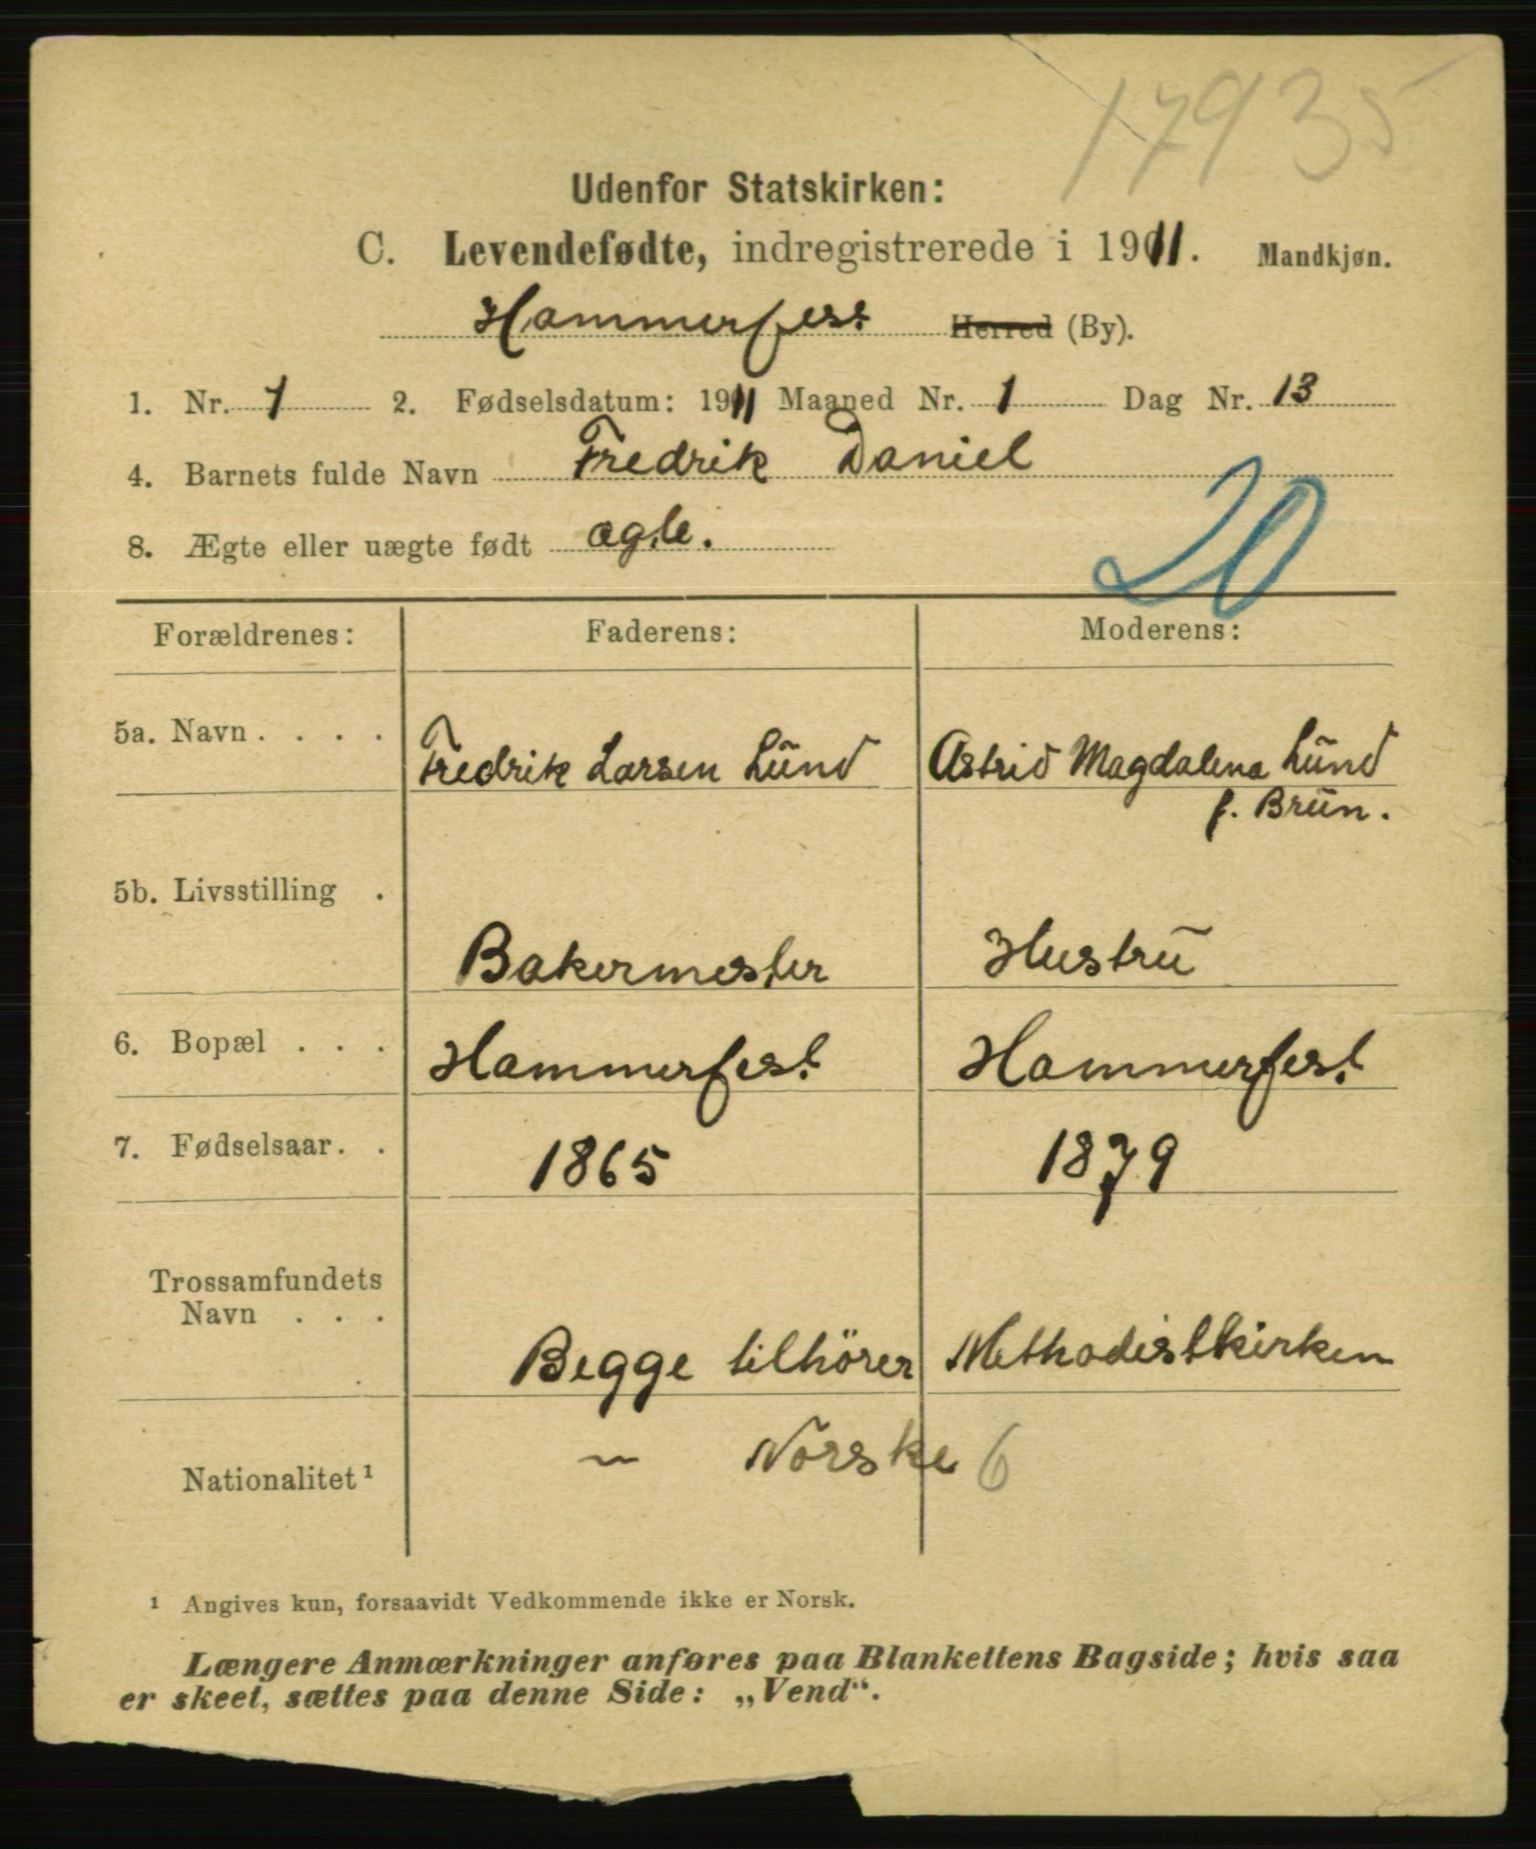 17935
Udenfor Statskirken:
C. Levendefødte, indregistrerede i 1911. Mandkjøn.
Hammerfest Herred (By).
1. Nr. 1 2. Fødselsdatum: 1911 Maaned Nr. 1 Dag Nr. 13
4. Barnets fulde Navn Fredrik Daniel
8. Ægte eller uægte født ægte.
20
Forældrenes: Faderens: Moderens:
5a. Navn . . . . Fredrik Larsen Lund Astrid Magdalena Lund
f. Brun.
5b. Livsstilling . Bakermester Hustru
6. Bopæl . . . Hammerfest Hammerfest
7. Fødselsaar . . 1865 1879
Trossamfundets
Navn . . . Begge tilhörer Methodistkirken
Nationalitet¹ – Norske 6
¹ Angives kun, forsaavidt Vedkommende ikke er Norsk.
Længere Anmærkninger anføres paa Blankettens Bagside; hvis saa
er skeet, sættes paa denne Side: „Vend“.